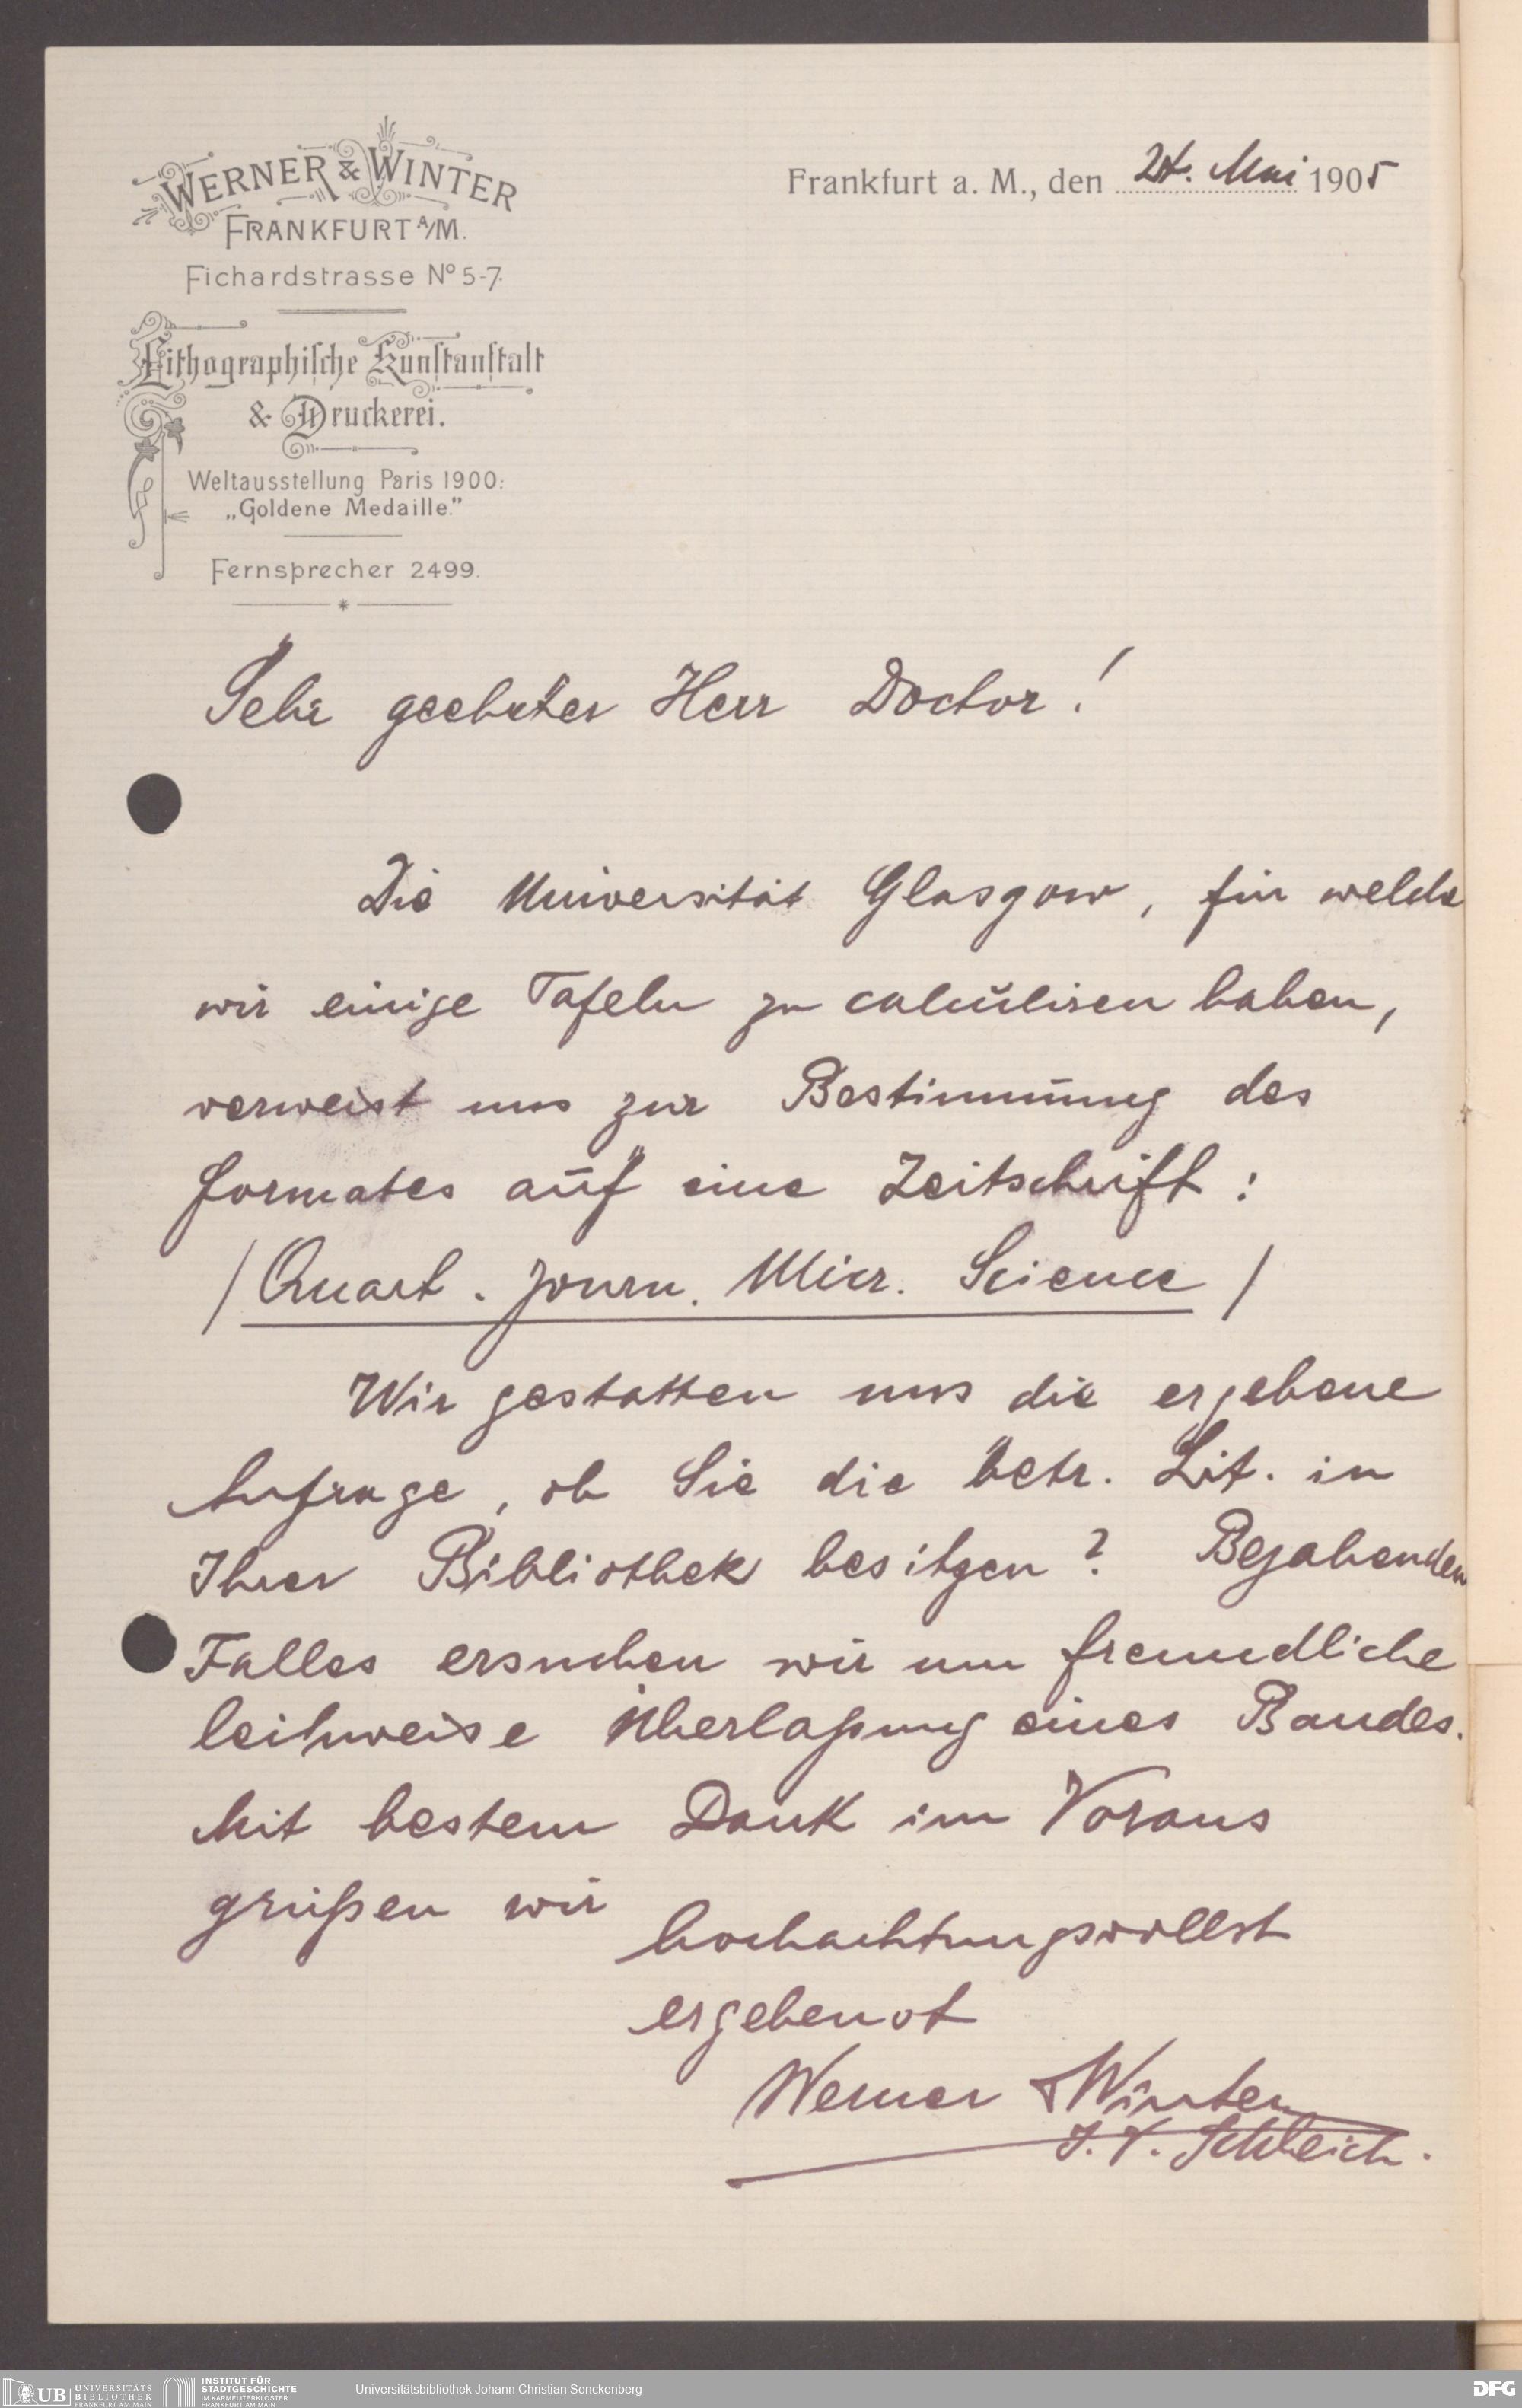 WERNER & WINTER
FRANKFURT A/M.
Fichardstrasse No 5-7.
Lithographische Kunstanstalt
& Druckerei.
Weltausstellung Paris 1900:
„Goldene Medaille."
Fernsprecher 2499.
Frankfurt a. M., den 24. Mai 1905
Sehr geehrter Herr Doctor!
Die Universität Glasgow, für welche
wir einige Tafeln zu calculiren haben,
verweist uns zur Bestimmung des
Formates auf eine Zeitschrift:
/Quart. Journ. Micr. Science/
Wir gestatten uns die ergebene
Anfrage, ob Sie die betr. Lit. in
Ihrer Bibliothek besitzen? Bejahenden
Falles ersuchen wir um freundliche
leihweise Überlaßung eines Bandes.
Mit bestem Dank im Voraus
grüßen wir
hochachtungsvollst
ergebenst
Werner & Winter
I. V. Schleich.
UB UNIVERSITÄTS
BIBLIOTHEK
FRANKFURT AM MAIN
INSTITUT FÜR
STADTGESCHICHTE
IM KARMELITERKLOSTER
FRANKFURT AM MAIN
Universitätsbibliothek Johann Christian Senckenberg
DFG